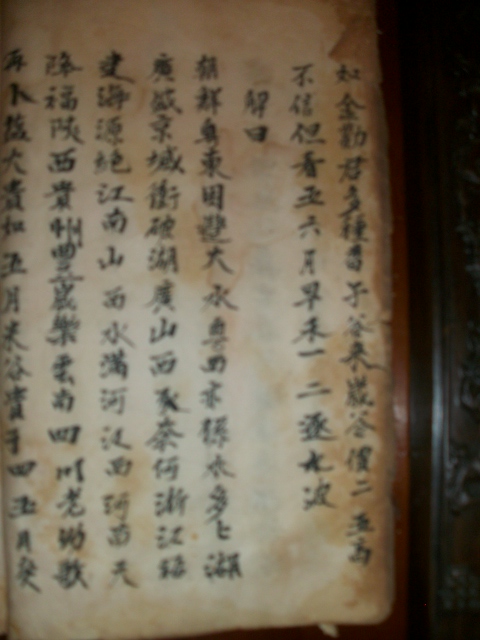 如金勸君多種香子谷來歲谷價二五高
不信但看五六月早禾一二逐九波
解曰
朝鮮粵東田遲大水粵西亦猺水多匕湖
廣盛京城衝破湖廣山西豕奈何浙江
建海源絕江南山西水滿河江西河南天
降福陝西貴州豊嵗樂雲南四川老幼歌
再卜蔬大貴如五月米谷貴于四五月癸